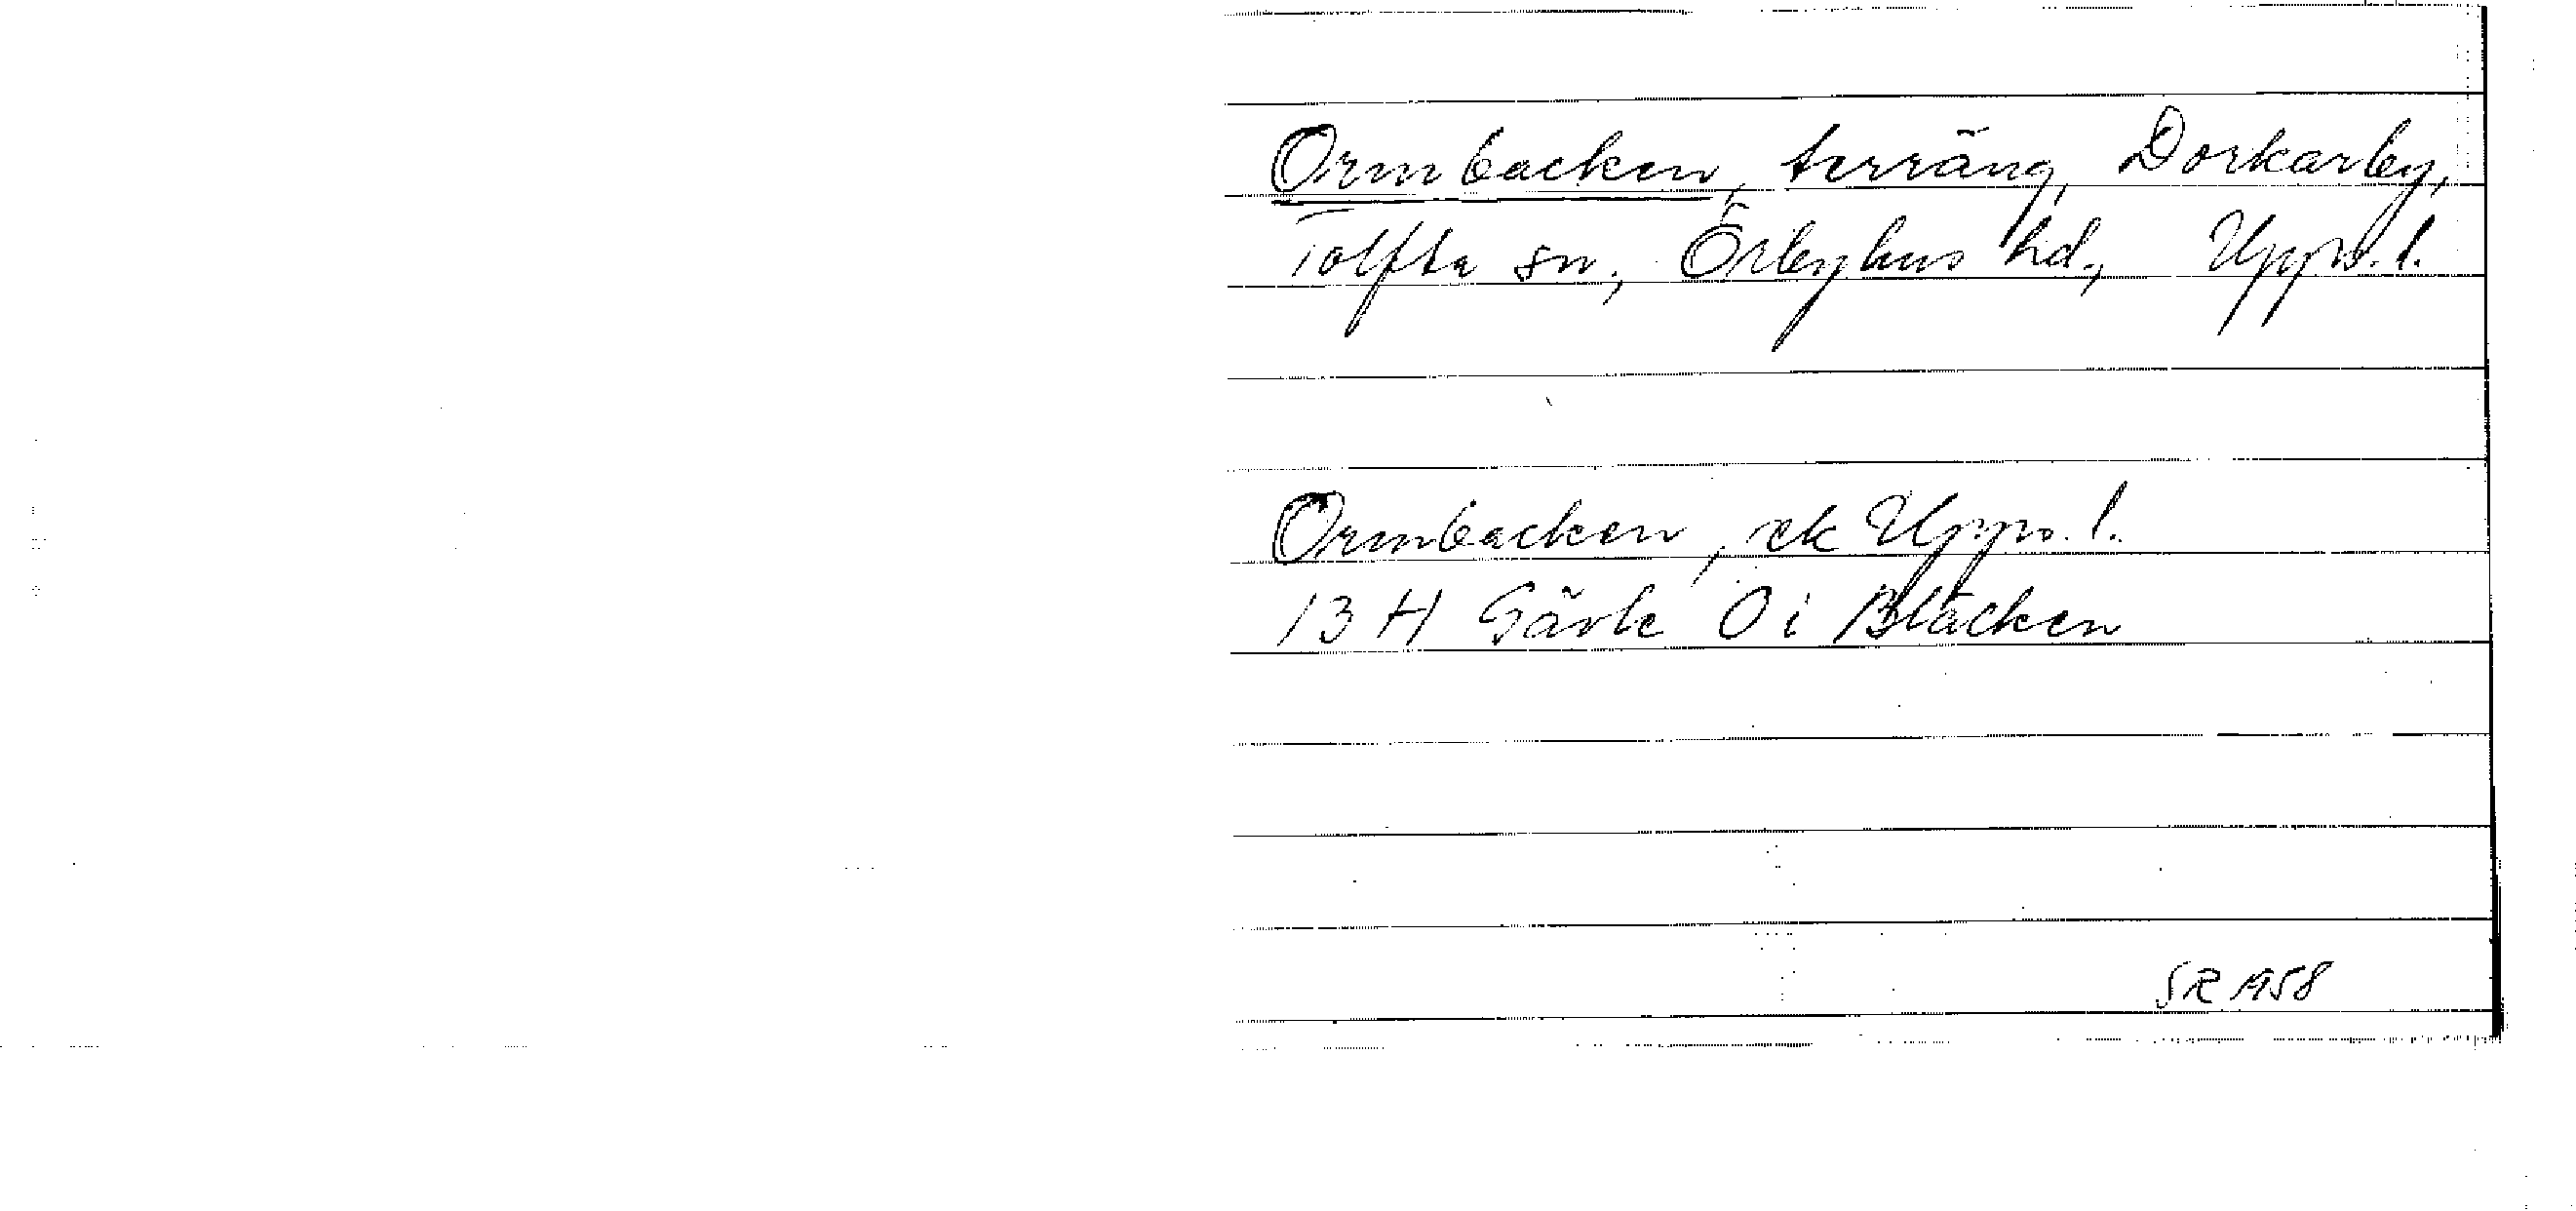 Ormbacken, terräng, Dorkarby,
Tolfta sn., Örbyhus hd., Upps. l.
Ormbacken, ek Upps. l.
13 H Gävle Ö i Bläcken
SR 1958